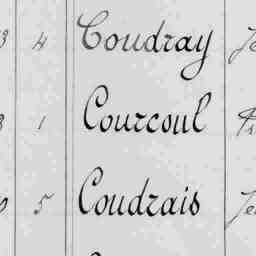 3 4 Coudray Je
3 1 Courcoul
0 5 Coudrais Je